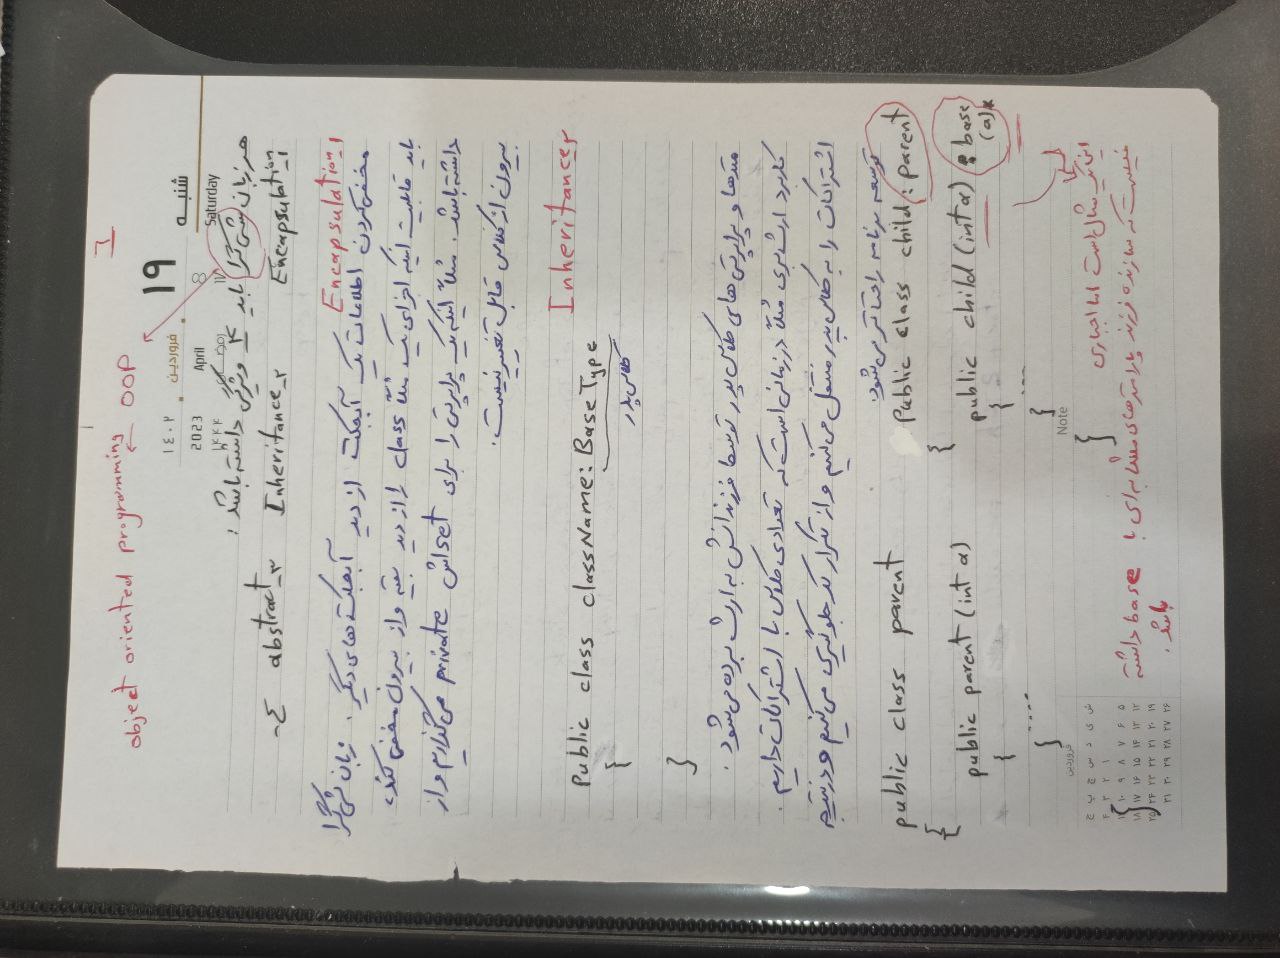 object oriented programming ← OOP
۱۹
شنبه
۱۴۰۲ فروردین
2023 April 8
۱۴۴۴ رمضان ۱۷
Saturday
هر زبان شی گرا باید ۴ ویژگی داشته باشد:
۱- Encapsulation ۲- Inheritance ۳- abstract ۴-
۱- Encapsulation
مخفی کردن اطلاعات یک آبجکت از دید آبجکت های دیگر. زبان شی گرا
باید قابلیت اینکه اجزای یک مثلاً class را از دید بقیه و از بیرون مخفی کند،
داشته باشد. مثلاً اینکه یک پراپرتی را برای setاش private می گذاریم و از
بیرون از کلاس قابل تغییر نیست.
Inheritance ۲
Public class className: BaseType
{
کلاس پدر
}
متدها و پراپرتی های کلاس پدر توسط فرزندانش به ارث برده می شود.
کاربرد ارث بری مثلاً در زمانی است که تعدادی کلاس با اشتراکات داریم.
اشتراکات را به کلاس پدر منتقل می کنیم و از تکرار کد جلوگیری می کنیم و در نتیجه
توسعه برنامه راحت تر می شود.
public class parent
{
public parent (int a)
{
....
}
}
Public class child : parent
{
public child (int a) : base
(a)*
{
...
}
Note
}
این یک مثال است اما اجباری
نیست که سازنده فرزند پارامترهای مشابه ای با base داشته
باشد.
فروردین
ش ی د س چ پ ج
۱ ۲ ۳ ۴
۵ ۶ ۷ ۸ ۹ ۱۰
۱۲ ۱۳ ۱۴ ۱۵ ۱۶ ۱۷ ۱۸
۱۹ ۲۰ ۲۱ ۲۲ ۲۳ ۲۴ ۲۵
۲۶ ۲۷ ۲۸ ۲۹ ۳۰ ۳۱